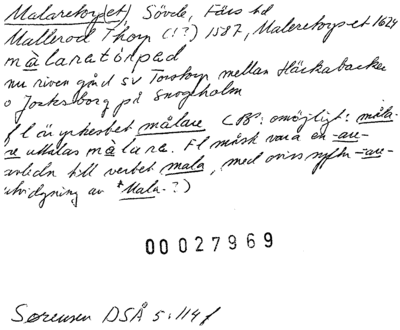 Malaretorp(et), Sövde, Färs hd
Mallerod Thorp (!?) 1587, Maleretorp-et 1624
màlaratórpad
nu riven gård SV Torstorp mellan Häckabacken
o Jockesborg på Snogeholm
fl är yrkesbet målare (PS: omöjligt: måla-
re uttalas màlara. Fl måsk vara en -are-
avledn till verbet mala, med oviss
utvidgning av *Mala-?)
00027969
Sørensen DSÅ 5:114 f